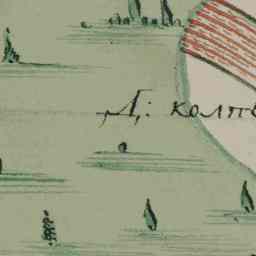 Д: колп